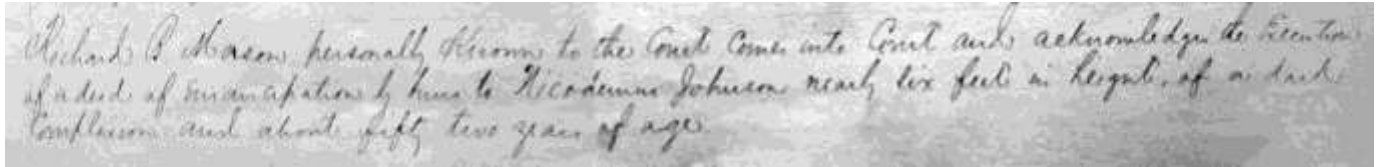 Richard B Mason personally Known to the Court comes into Court and acknowledges the Execution
of a deed of emancipation by him to Nicodemus Johnson nearly six feet in height, of a dark
Complexion and about fifty two years of age